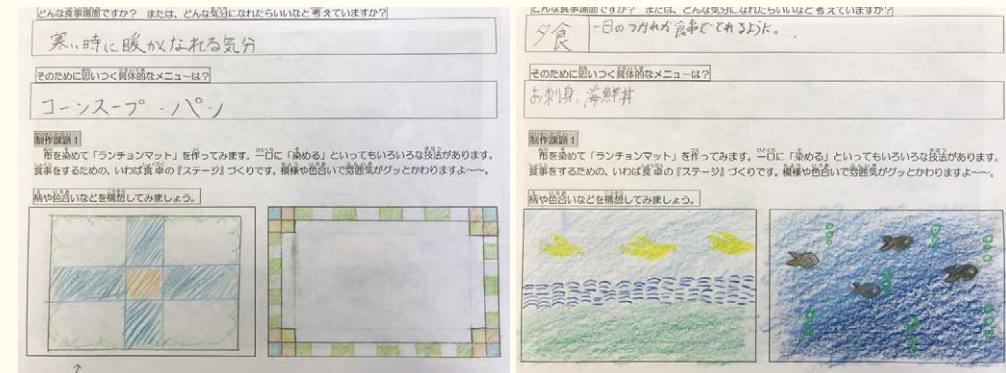 どんな食事場面ですか？　または、どんな気分になれたらいいなと考えていますか？
寒い時に暖かくなれる気分
そのために思いつく具体的なメニューは？
コーンスープ・パン
制作課題1
布を染めて「ランチョンマット」を作ってみます。一口に「染める」といってもいろいろな技法があります。
食事をするための、いわば食卓の『ステージ』づくりです。模様や色合いで雰囲気がグッとかわりますよ〜〜。
柄や色合いなどを構想してみましょう。
どんな食事場面ですか？　または、どんな気分になれたらいいなと考えていますか？
夕食
一日のつかれが食事でとれるように。
そのために思いつく具体的なメニューは？
お刺身、海鮮丼
制作課題1
布を染めて「ランチョンマット」を作ってみます。一口に「染める」といってもいろいろな技法があります。
食事をするための、いわば食卓の『ステージ』づくりです。模様や色合いで雰囲気がグッとかわりますよ〜〜。
柄や色合いなどを構想してみましょう。